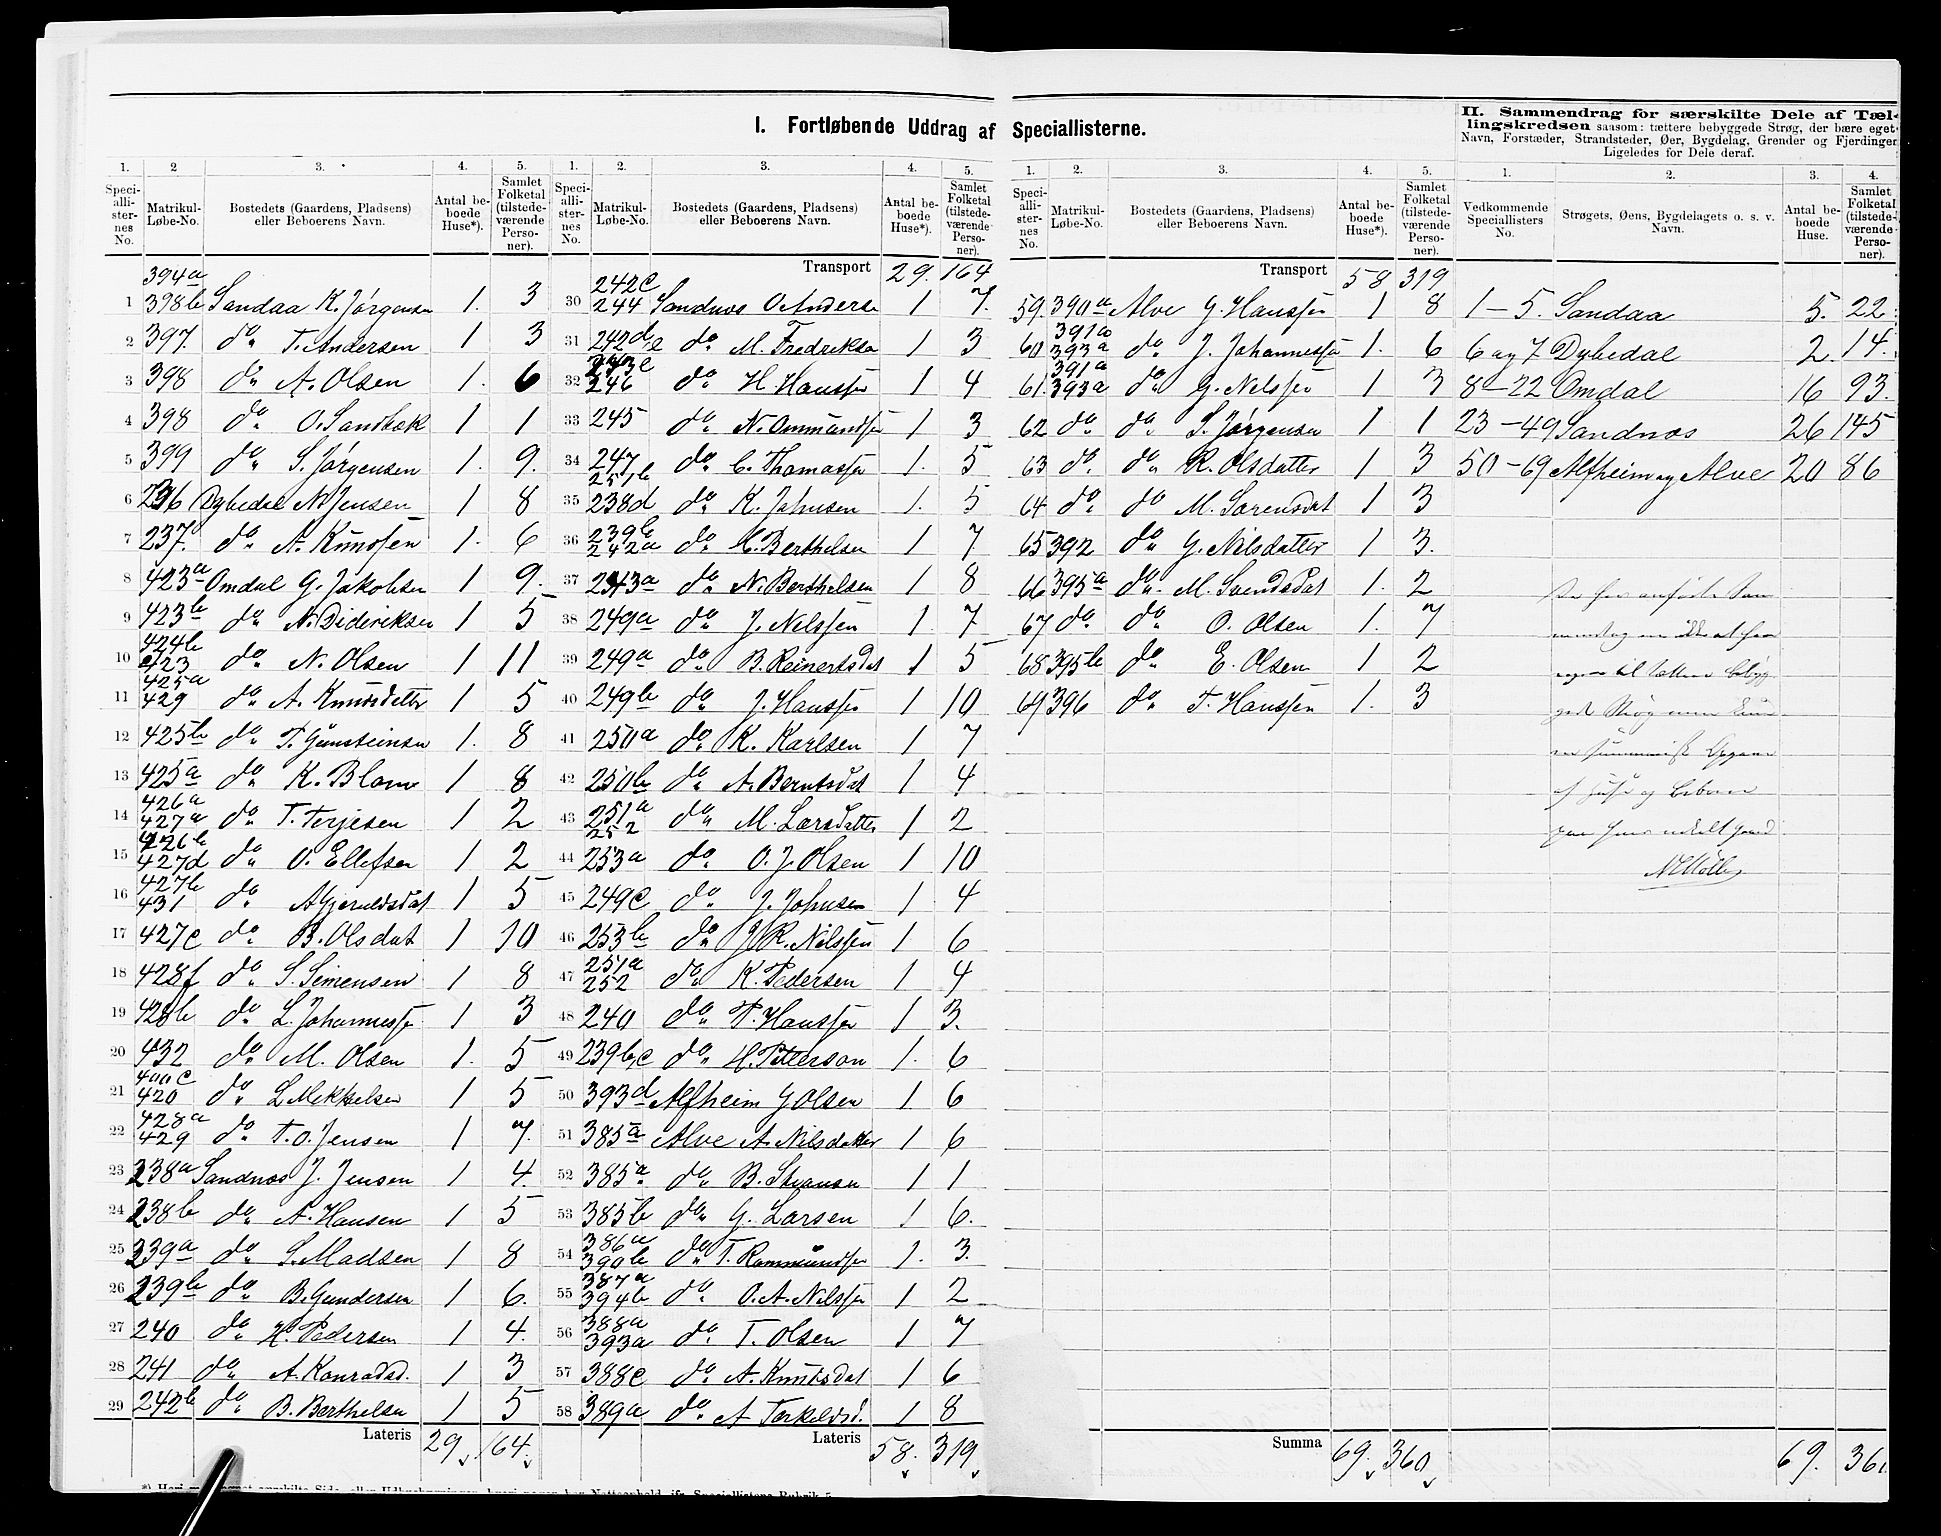 I. Fortløbende Uddrag af Speciallisterne.
II. Sammendrag for særskilte Dele af Tæl-
lingskredsen saasom: tættere bebyggede Strøg, der bære eget
Navn, Forstæder, Strandsteder, Øer, Bygdelag, Grender og Fjerdinger
Ligeledes for Dele deraf.
1. 2 3. 4. 5.
Speci-alli-ster-nes No. Matrikul-Løbe-No. Bostedets (Gaardens, Pladsens) eller Beboerens Navn. Antal be-boede Huse*). Samlet Folketal (tilstede-værende Perso-ner).
394a
1 398b Sandaa K. Jørgensen 1. 3
2 397. do T. Andersen 1 3
3 398 do A. Olsen 1. 6
4 398 do O. Sandbæk 1 1
5 399 do S. Jørgensen 1. 9.
6 236 Dybedal N. Jensen 1 8
7 237. do A. Knudsen 1. 6
8 423a Omdal G. Jakobsen 1 9.
9 423b do N. Dideriksen 1 5
424b
10 423 do N. Olsen 1 11
425a
11 429 do A. Knudsdatter 1 5
12 425b do T. Gunsteinsen 1. 8
13 425a do K. Blom 1 8
426a
14 427a do T. Terjesen 1 2
426b
15 427d do O. Ellefsen 1 2
427b
16 431 do A Gjeruldsdat 1 5
17 427c do B. Olsdat 1 10
18 428f do S. Simensen 1 8
19 428b do L. Johannessen 1 3
20 432 do M. Olsen 1. 5
400c
21 420 do L Mikkelsen 1 5
428a
22 429 do T. O. Jensen 1 7.
23 238a Sandnæs J. Jensen 1 4.
24 238b do A. Hansen 1 5
25 239a do S. Madsen 1 8
26 239b do B. Gundersen 1 6.
27 240 do H. Pedersen 1 4.
28 241 do A. Konradsd. 1 3
29 242b do B. Berthelsen 1 5
Lateris 29. 164.
1. 2. 3. 4. 5.
Speci-alli-ster-nes No. Matrikul-Løbe-No. Bostedets (Gaardens, Pladsens) eller Beboerens Navn. Antal be-boede Huse*). Samlet Folketal (tilstede-værende Perso-ner).
Transport 29. 164
242c
30 244 Sandnæs O Anderse 1 7.
31 242d,e do M. Fredriksen 1 3
243c
32 246 do H. Hanssen 1 4
33 245 do N. Ommundsen 1 3
34 247 251b do C. Thomassen 1. 5
35 238d do K. Johnsen 1. 5
239b
36 242a do C. Berthelsen 1 7
37 243a do N. Berthelsen 1 8
38 249a do J. Nilssen 1. 7
39 249a do B. Reinertsdat 1 5
40 249b do J. Hanssen 1 10
41 250a do K. Karlsen 1 7
42 250b do A. Berntsdat 1 4
251a
43 252 do M. Larsdatter 1 2
44 253a do O. J. Olsen 1 10
45 249c do J. Johnsen 1 4
46 253b do J R. Nilssen 1 6
251a
47 252 do K. Pedersen 1 4
48 240 do P. Hanssen 1 3.
49 239b,c do H. Petterson 1. 6
50 393d Alfheim G Olsen 1 6
51 385a Alve A. Nilsdatter 1 6
52 385a do B. 1 1
53 385b do G. Larsen 1 6.
386a
54 390b do T. Rommundsen 1. 3.
387a
55 394b do O. A. Nilssen 1 2
388a
56 393a do T. Olsen 1 7
57 388c do A. Knutsdat 1 6
58 389a do A Torkeldsd. 1 8
Lateris 58. 319.
1. 2. 3. 4. 5.
Speci-alli-ster-nes No. Matrikul-Løbe-No. Bostedets (Gaardens, Pladsens) eller Beboerens Navn. Antal be-boede Huse*). Samlet Folketal (tilstede-værende Perso-ner).
Transport 58 319
59. 390a Alve G. Hanssen 1 8
391a
60 393a do J. Johannessen 1. 6
391a
61. 393a do G. Nilssen 1 3
62 do do S. Jørgensen 1 1
63 do do R. Olsdatter 1 3
64 do do M. Sørensdat 1 3
65 392 do G. Nilsdatter 1 3.
66 395a do M. Svendsdat 1. 2
67 do do O. Olsen 1. 7
68 395b do E. Olsen 1 2
69 396 do T. Hanssen 1. 3
Summa 69. 360.
1. 2. 3. 4.
Vedkommende Speciallisters No. Strøgets, Øens, Bygdelagets o. s. v. Navn. Antal be-boede Huse. Samlet Folketal (tilstede-værende Perso-ner).
1 – 5. Sandaa 5. 22.
6 og 7 Dybedal 2. 14.
8 – 22 Omdal 16 93.
23 – 49 Sandnæs 26 145
50 – 69 Alfheim og Alve 20 86
De her anførte Sam
til tættere bebyg
Strøg men kun
en summarisk Opgave
af Huse og Beboere
paa hver enkelt Gaard
69. 36